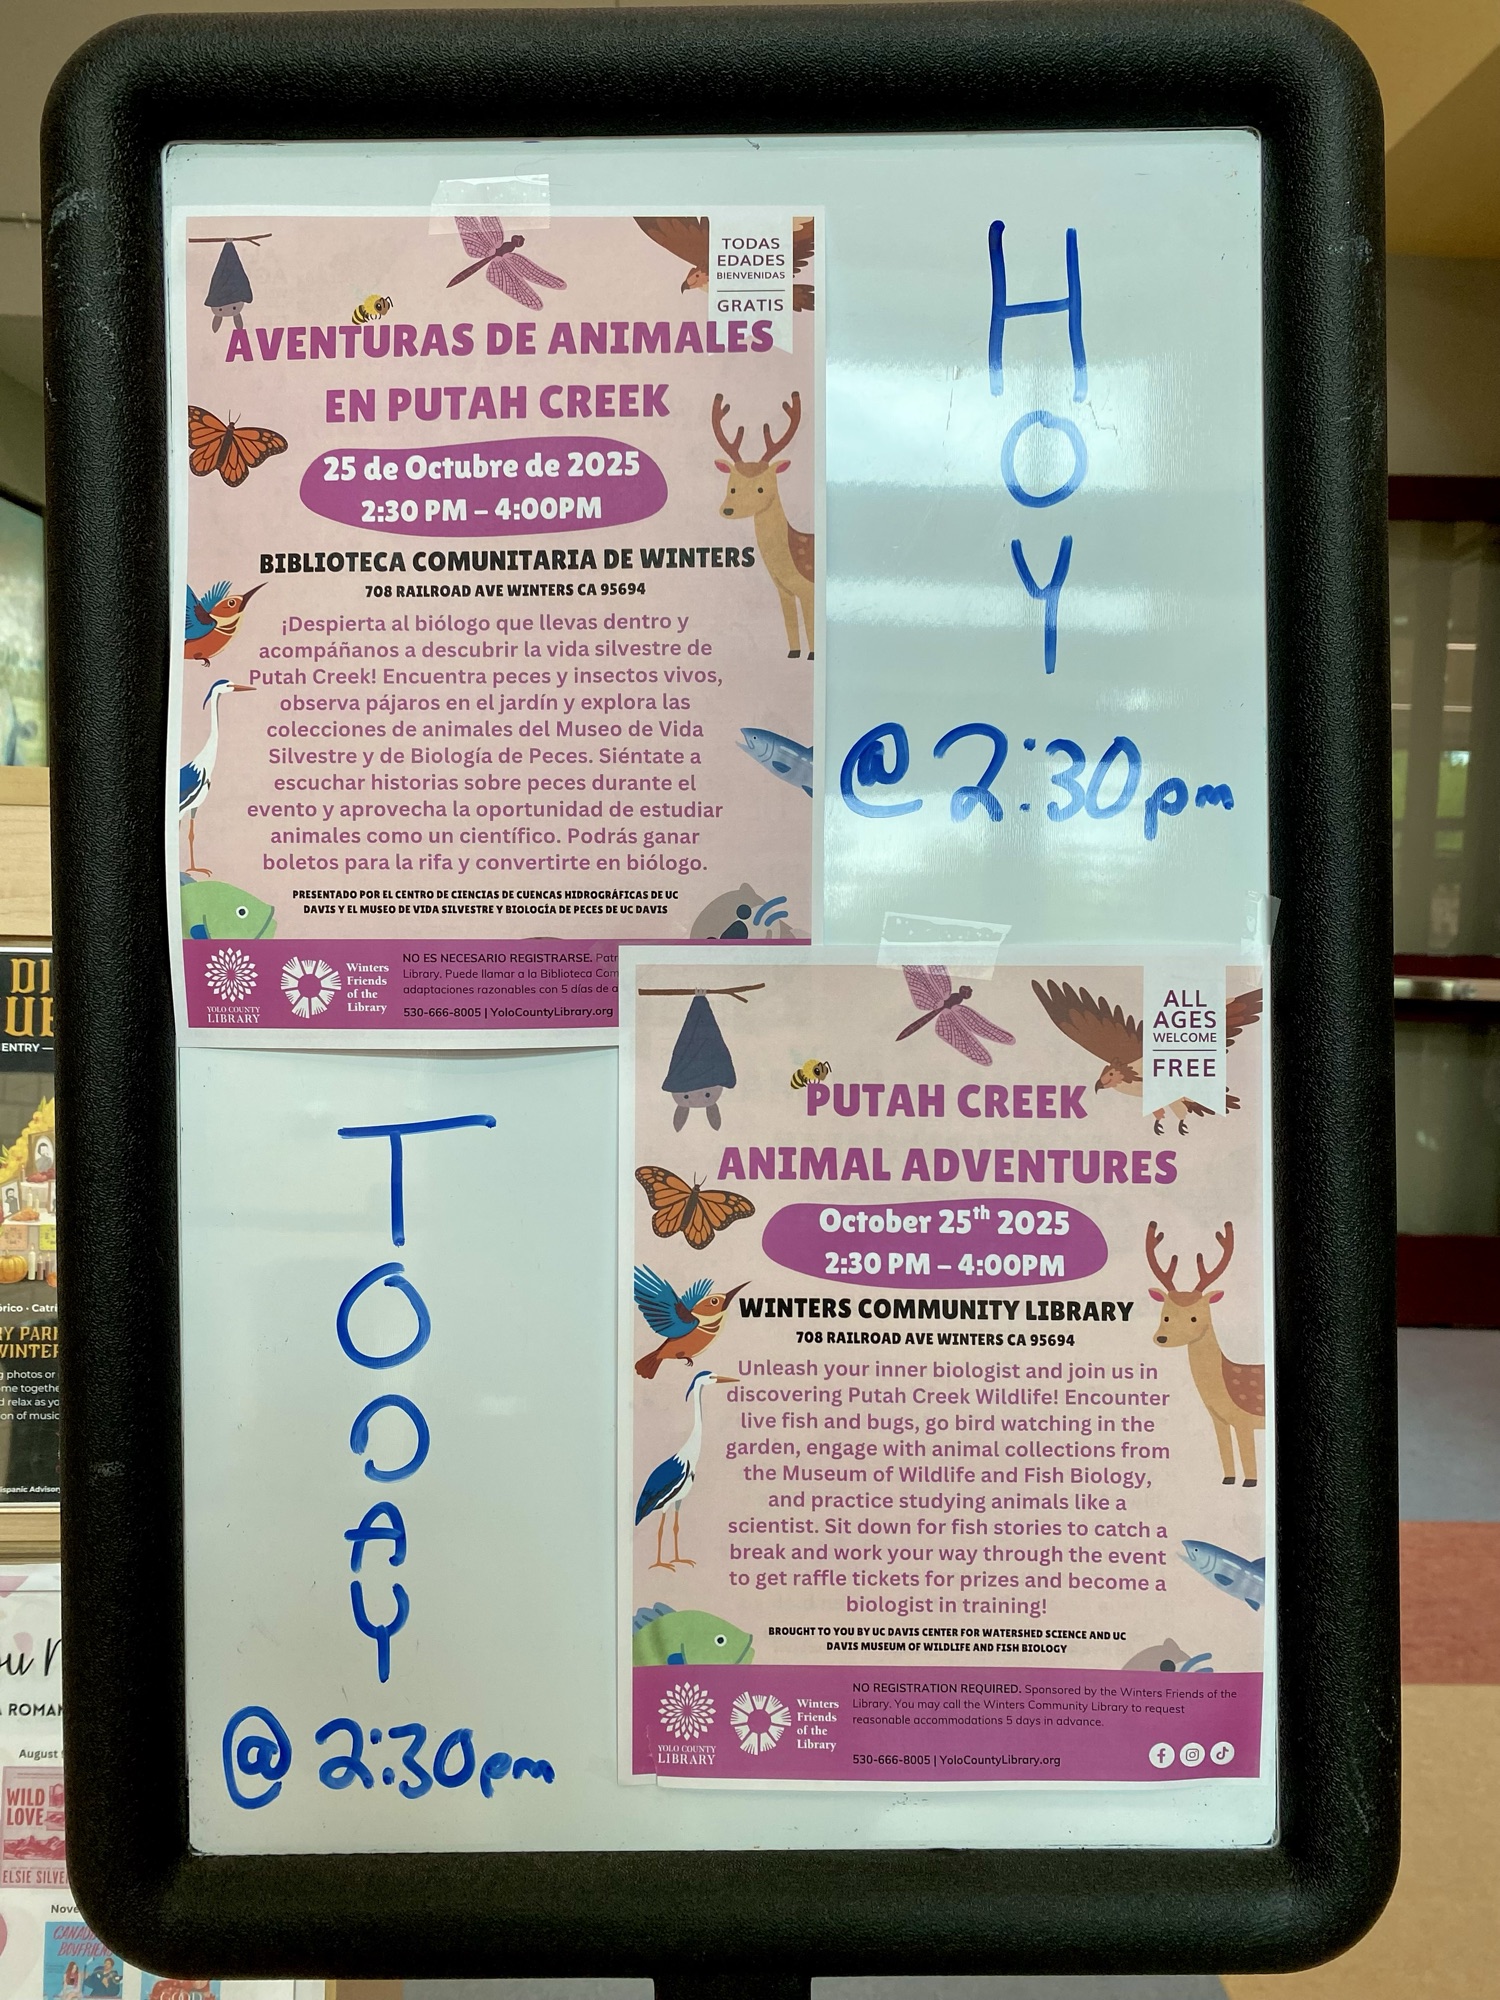 TODAS
EDADES
BIENVENIDAS
GRATIS
AVENTURAS DE ANIMALES
EN PUTAH CREEK
25 de Octubre de 2025
2:30 PM – 4:00PM
BIBLIOTECA COMUNITARIA DE WINTERS
708 RAILROAD AVE WINTERS CA 95694
¡Despierta al biólogo que llevas dentro y
acompáñanos a descubrir la vida silvestre de
Putah Creek! Encuentra peces y insectos vivos,
observa pájaros en el jardín y explora las
colecciones de animales del Museo de Vida
Silvestre y de Biología de Peces. Siéntate a
escuchar historias sobre peces durante el
evento y aprovecha la oportunidad de estudiar
animales como un científico. Podrás ganar
boletos para la rifa y convertirte en biólogo.
PRESENTADO POR EL CENTRO DE CIENCIAS DE CUENCAS HIDROGRÁFICAS DE UC
DAVIS Y EL MUSEO DE VIDA SILVESTRE Y BIOLOGÍA DE PECES DE UC DAVIS
YOLO COUNTY
LIBRARY
Winters
Friends
of the
Library
NO ES NECESARIO REGISTRARSE.
Library. Puede llamar a la Biblioteca
adaptaciones razonables con 5 días de
530-666-8005 | YoloCountyLibrary.org
H
O
Y
@ 2:30pm
T
O
D
A
Y
@ 2:30pm
ALL
AGES
WELCOME
FREE
PUTAH CREEK
ANIMAL ADVENTURES
October 25th 2025
2:30 PM – 4:00PM
WINTERS COMMUNITY LIBRARY
708 RAILROAD AVE WINTERS CA 95694
Unleash your inner biologist and join us in
discovering Putah Creek Wildlife! Encounter
live fish and bugs, go bird watching in the
garden, engage with animal collections from
the Museum of Wildlife and Fish Biology,
and practice studying animals like a
scientist. Sit down for fish stories to catch a
break and work your way through the event
to get raffle tickets for prizes and become a
biologist in training!
BROUGHT TO YOU BY UC DAVIS CENTER FOR WATERSHED SCIENCE AND UC
DAVIS MUSEUM OF WILDLIFE AND FISH BIOLOGY
YOLO COUNTY
LIBRARY
Winters
Friends
of the
Library
NO REGISTRATION REQUIRED. Sponsored by the Winters Friends of the
Library. You may call the Winters Community Library to request
reasonable accommodations 5 days in advance.
530-666-8005 | YoloCountyLibrary.org
ENTRY —
photos or
relax as
August
WILD
LOVE
ELSIE